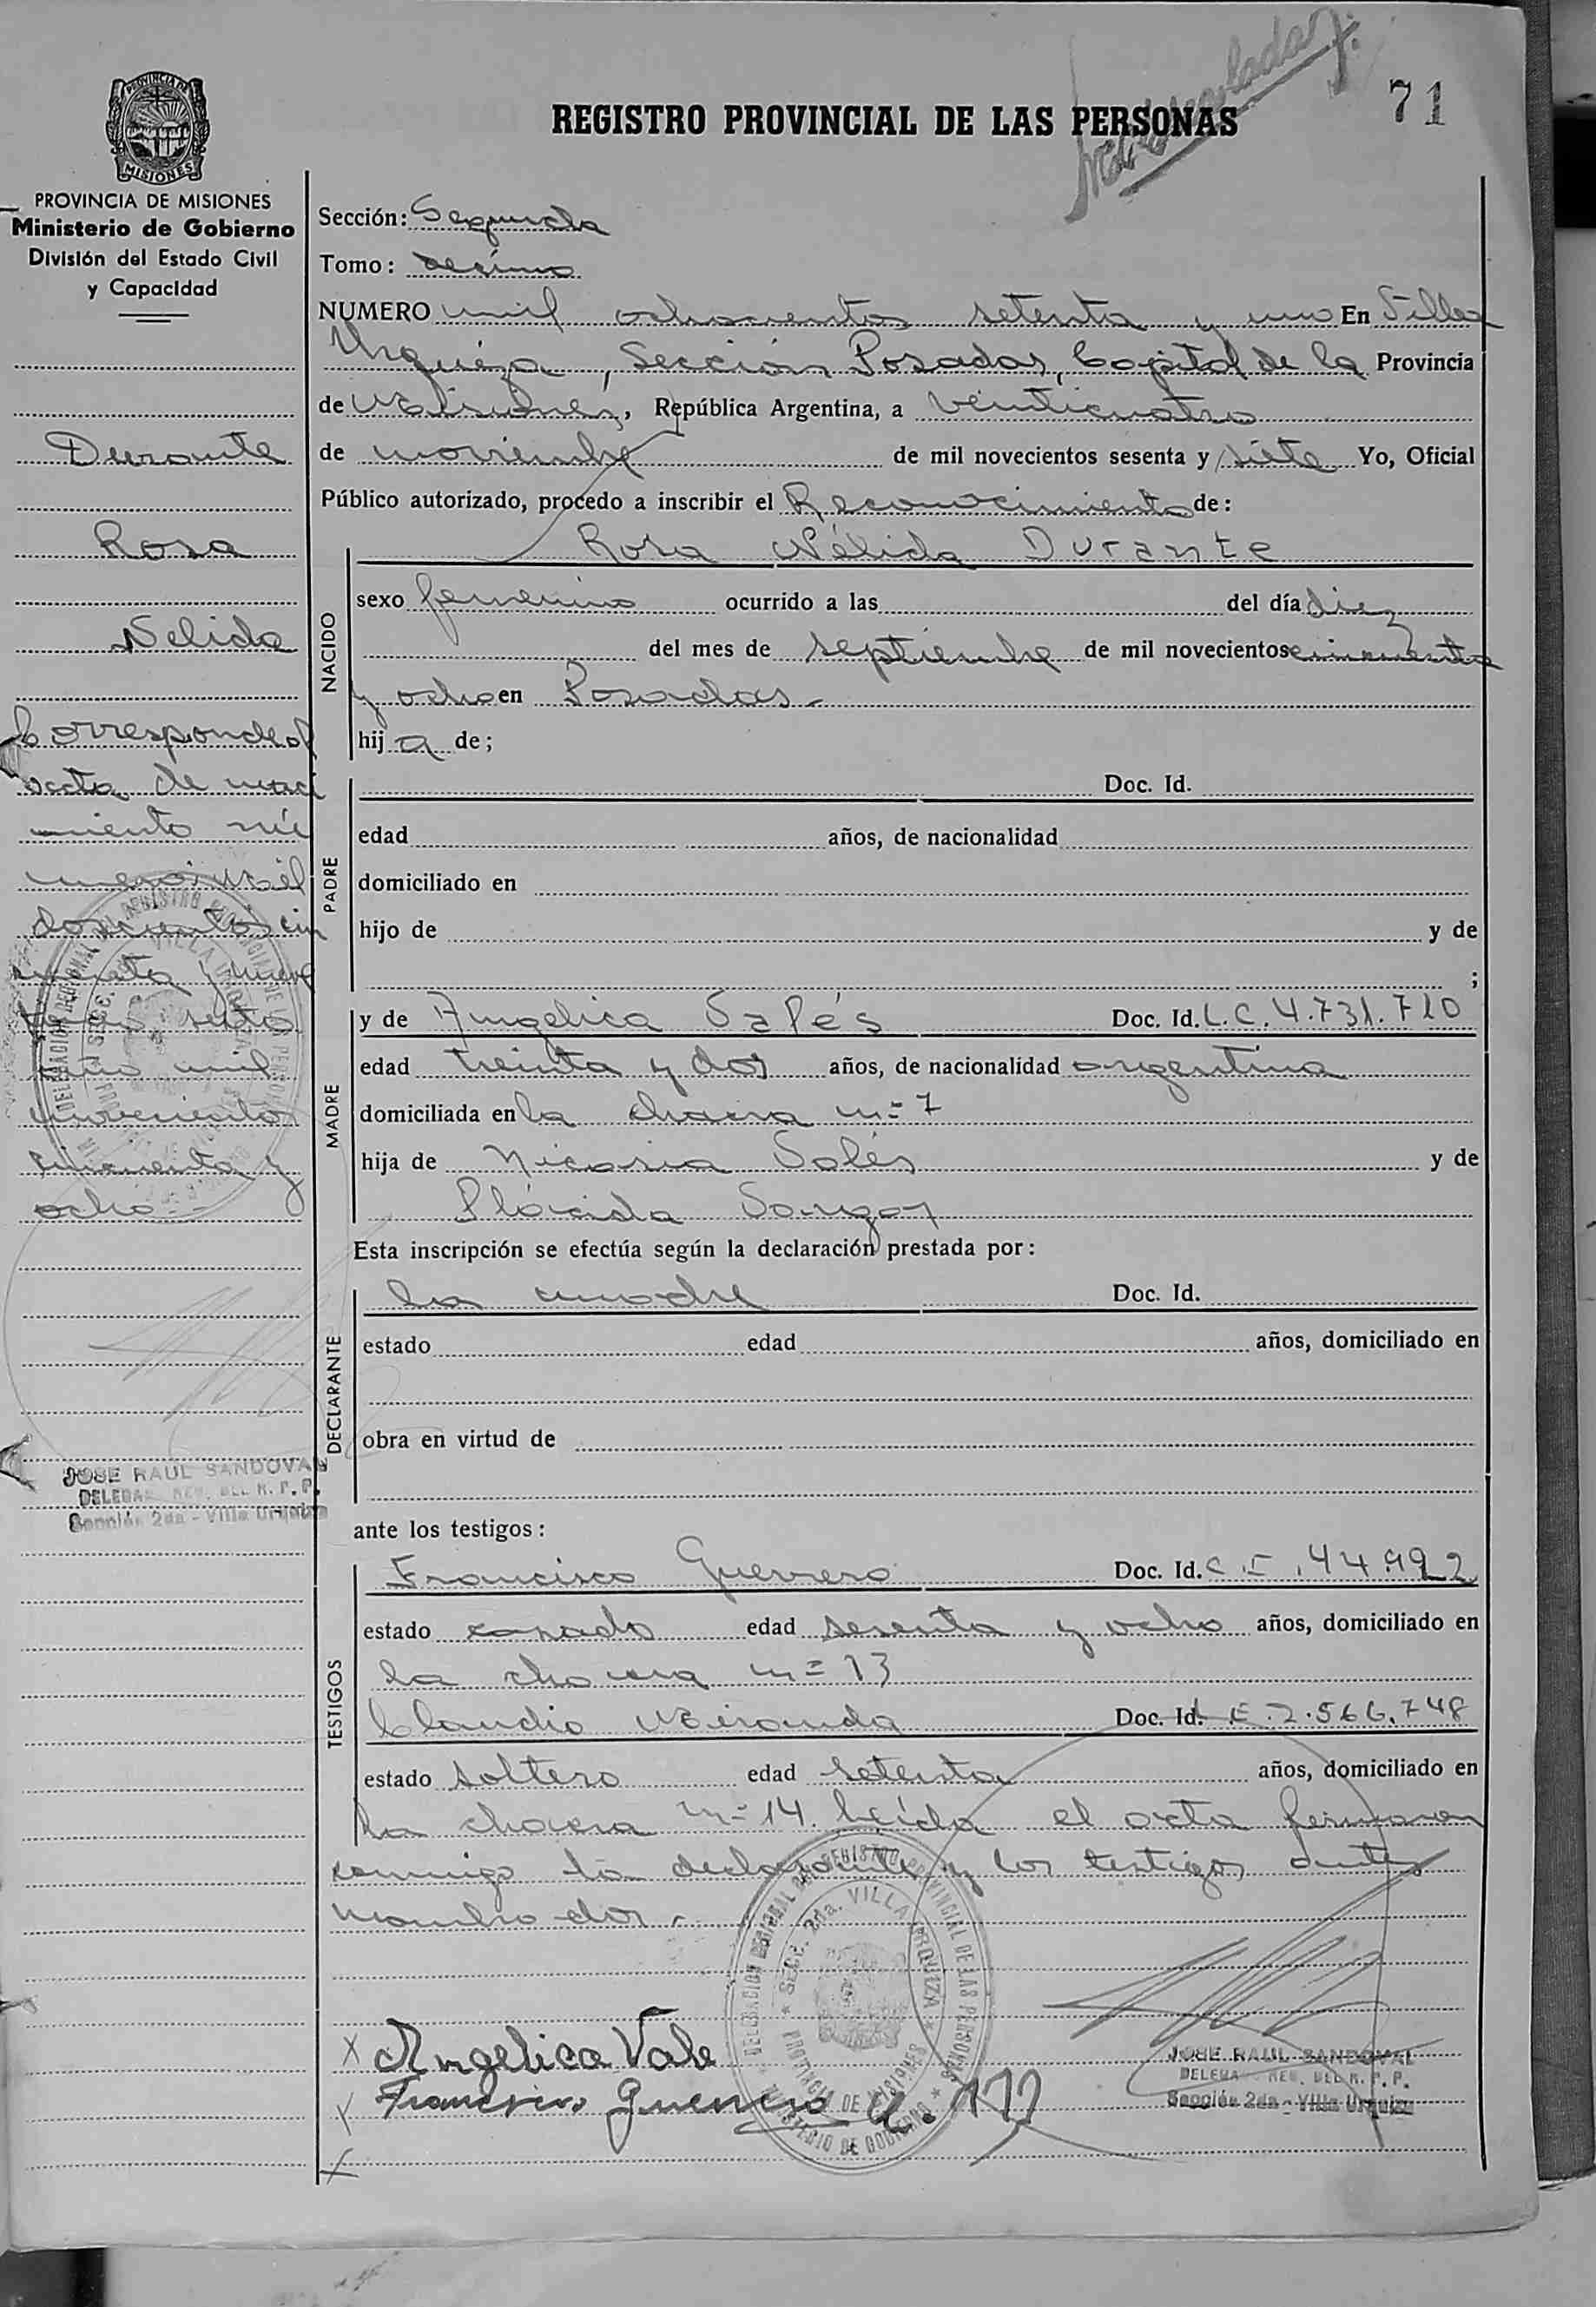 71
REGISTRO PROVINCIAL DE LAS PERSONAS
MISIONES
PROVINCIA DE MISIONES
Ministerio de Gobierno
División del Estado Civil
y Capacidad
Durante
Rosa
Nelida
Corresponde al
acta de naci
miento nú
mero: Mil
doscientos cin
cuenta y nueve
año mil
novecientos
cincuenta y
ocho.-
JOSE RAUL SANDOVAL
DELEGADO REG. DEL R. P. P.
Sección 2da - Villa Urquiza
Sección: Segunda
Tomo: décimo
NUMERO mil ochocientos setenta y uno En Villa
Urquiza, Sección Posadas, Capital de la Provincia
de Misiones, República Argentina, a veinticuatro
de noviembre de mil novecientos sesenta y siete Yo, Oficial
Público autorizado, procedo a inscribir el Reconocimiento de:
Rosa Nélida Durante
NACIDO
sexo femenino ocurrido a las del día diez
del mes de septiembre de mil novecientos cincuenta
y ocho en Posadas.-
hij a de;
PADRE
Doc. Id.
edad años, de nacionalidad
domiciliado en
hijo de y de
;
MADRE
y de Angelica Doc. Id. L.C. 4.731.710
edad treinta y dos años, de nacionalidad argentina
domiciliada en la chacra nº 7
hija de y de
Plácida
Esta inscripción se efectúa según la declaración prestada por:
DECLARANTE
la madre Doc. Id.
estado edad años, domiciliado en
obra en virtud de
ante los testigos:
TESTIGOS
Francisco Guerrero Doc. Id. C.I. 44.992
estado casado edad sesenta y ocho años, domiciliado en
la chacra nº 13
Claudio Miranda Doc. Id. L.E. 2.566.748
estado soltero edad setenta años, domiciliado en
la chacra nº 14. Leída el acta firmaron
conmigo la declarante y los testigos antes
nombrados.-
DELEGACION REGIONAL DEL REGISTRO PROVINCIAL DE LAS PERSONAS
SECC. 2da. VILLA URQUIZA
PROVINCIA DE MISIONES
MINISTERIO DE GOBIERNO
x Angelica
x Francisco Guerrero
x
JOSE RAUL SANDOVAL
DELEGADO REG. DEL R. P. P.
Sección 2da - Villa Urquiza